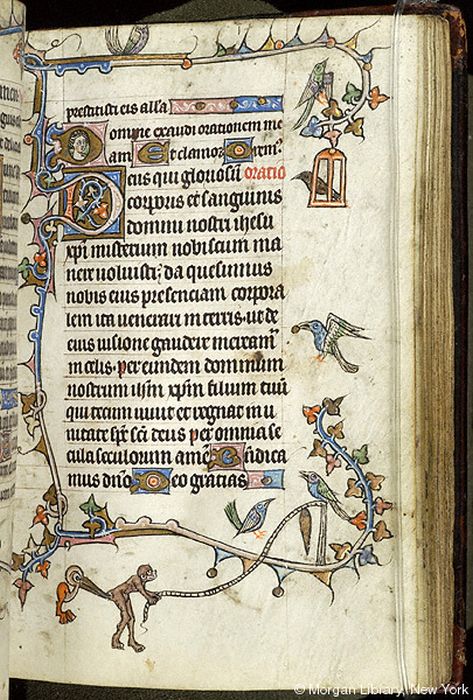 prestitisti eis alla
Domine exaudi orationem me
am Et clamor Orem⁹
Deus qui gloriosū oratio
corporis et sanguinis
domini nostri ihesu
xp̄i misterium nobiscum ma
nere uoluisti; da quesumus
nobis eius presenciam corpora
lem ita uenerari in terris. ut de
eius uisione gaudere meream᷑
in celis. per eundem dominum
nostrum ih̄m xp̄m filium tuū
qui tecum uiuit et regnat in u
nitate sp̄s sc̄i deus per omnia se
cula seculorum amē Bn̄dica
mus dn̄o Deo gracias
© Morgan Library, New York